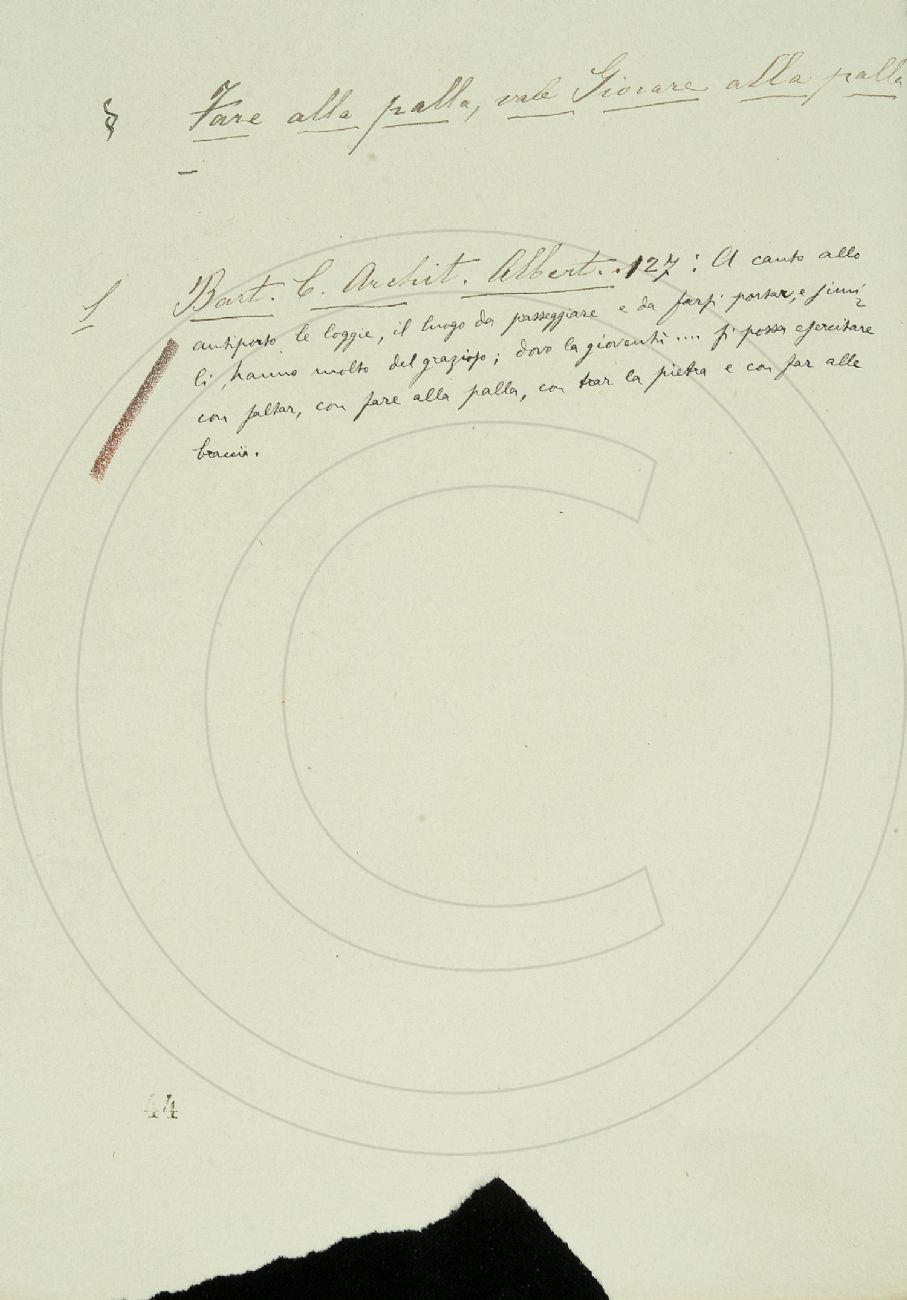 § Fare alla palla, vale Giocare alla palla
–
1 Bart. C. Archit. Albert. 127: A canto allo
antiporto le loggie, il luogo da passeggiare e da farsi portar, e simi=
li, hanno molto del grazioso; dove la gioventù .... si possa esercitare
con saltar, con fare alla palla, con trar la pietra e con far alle
braccia.
44